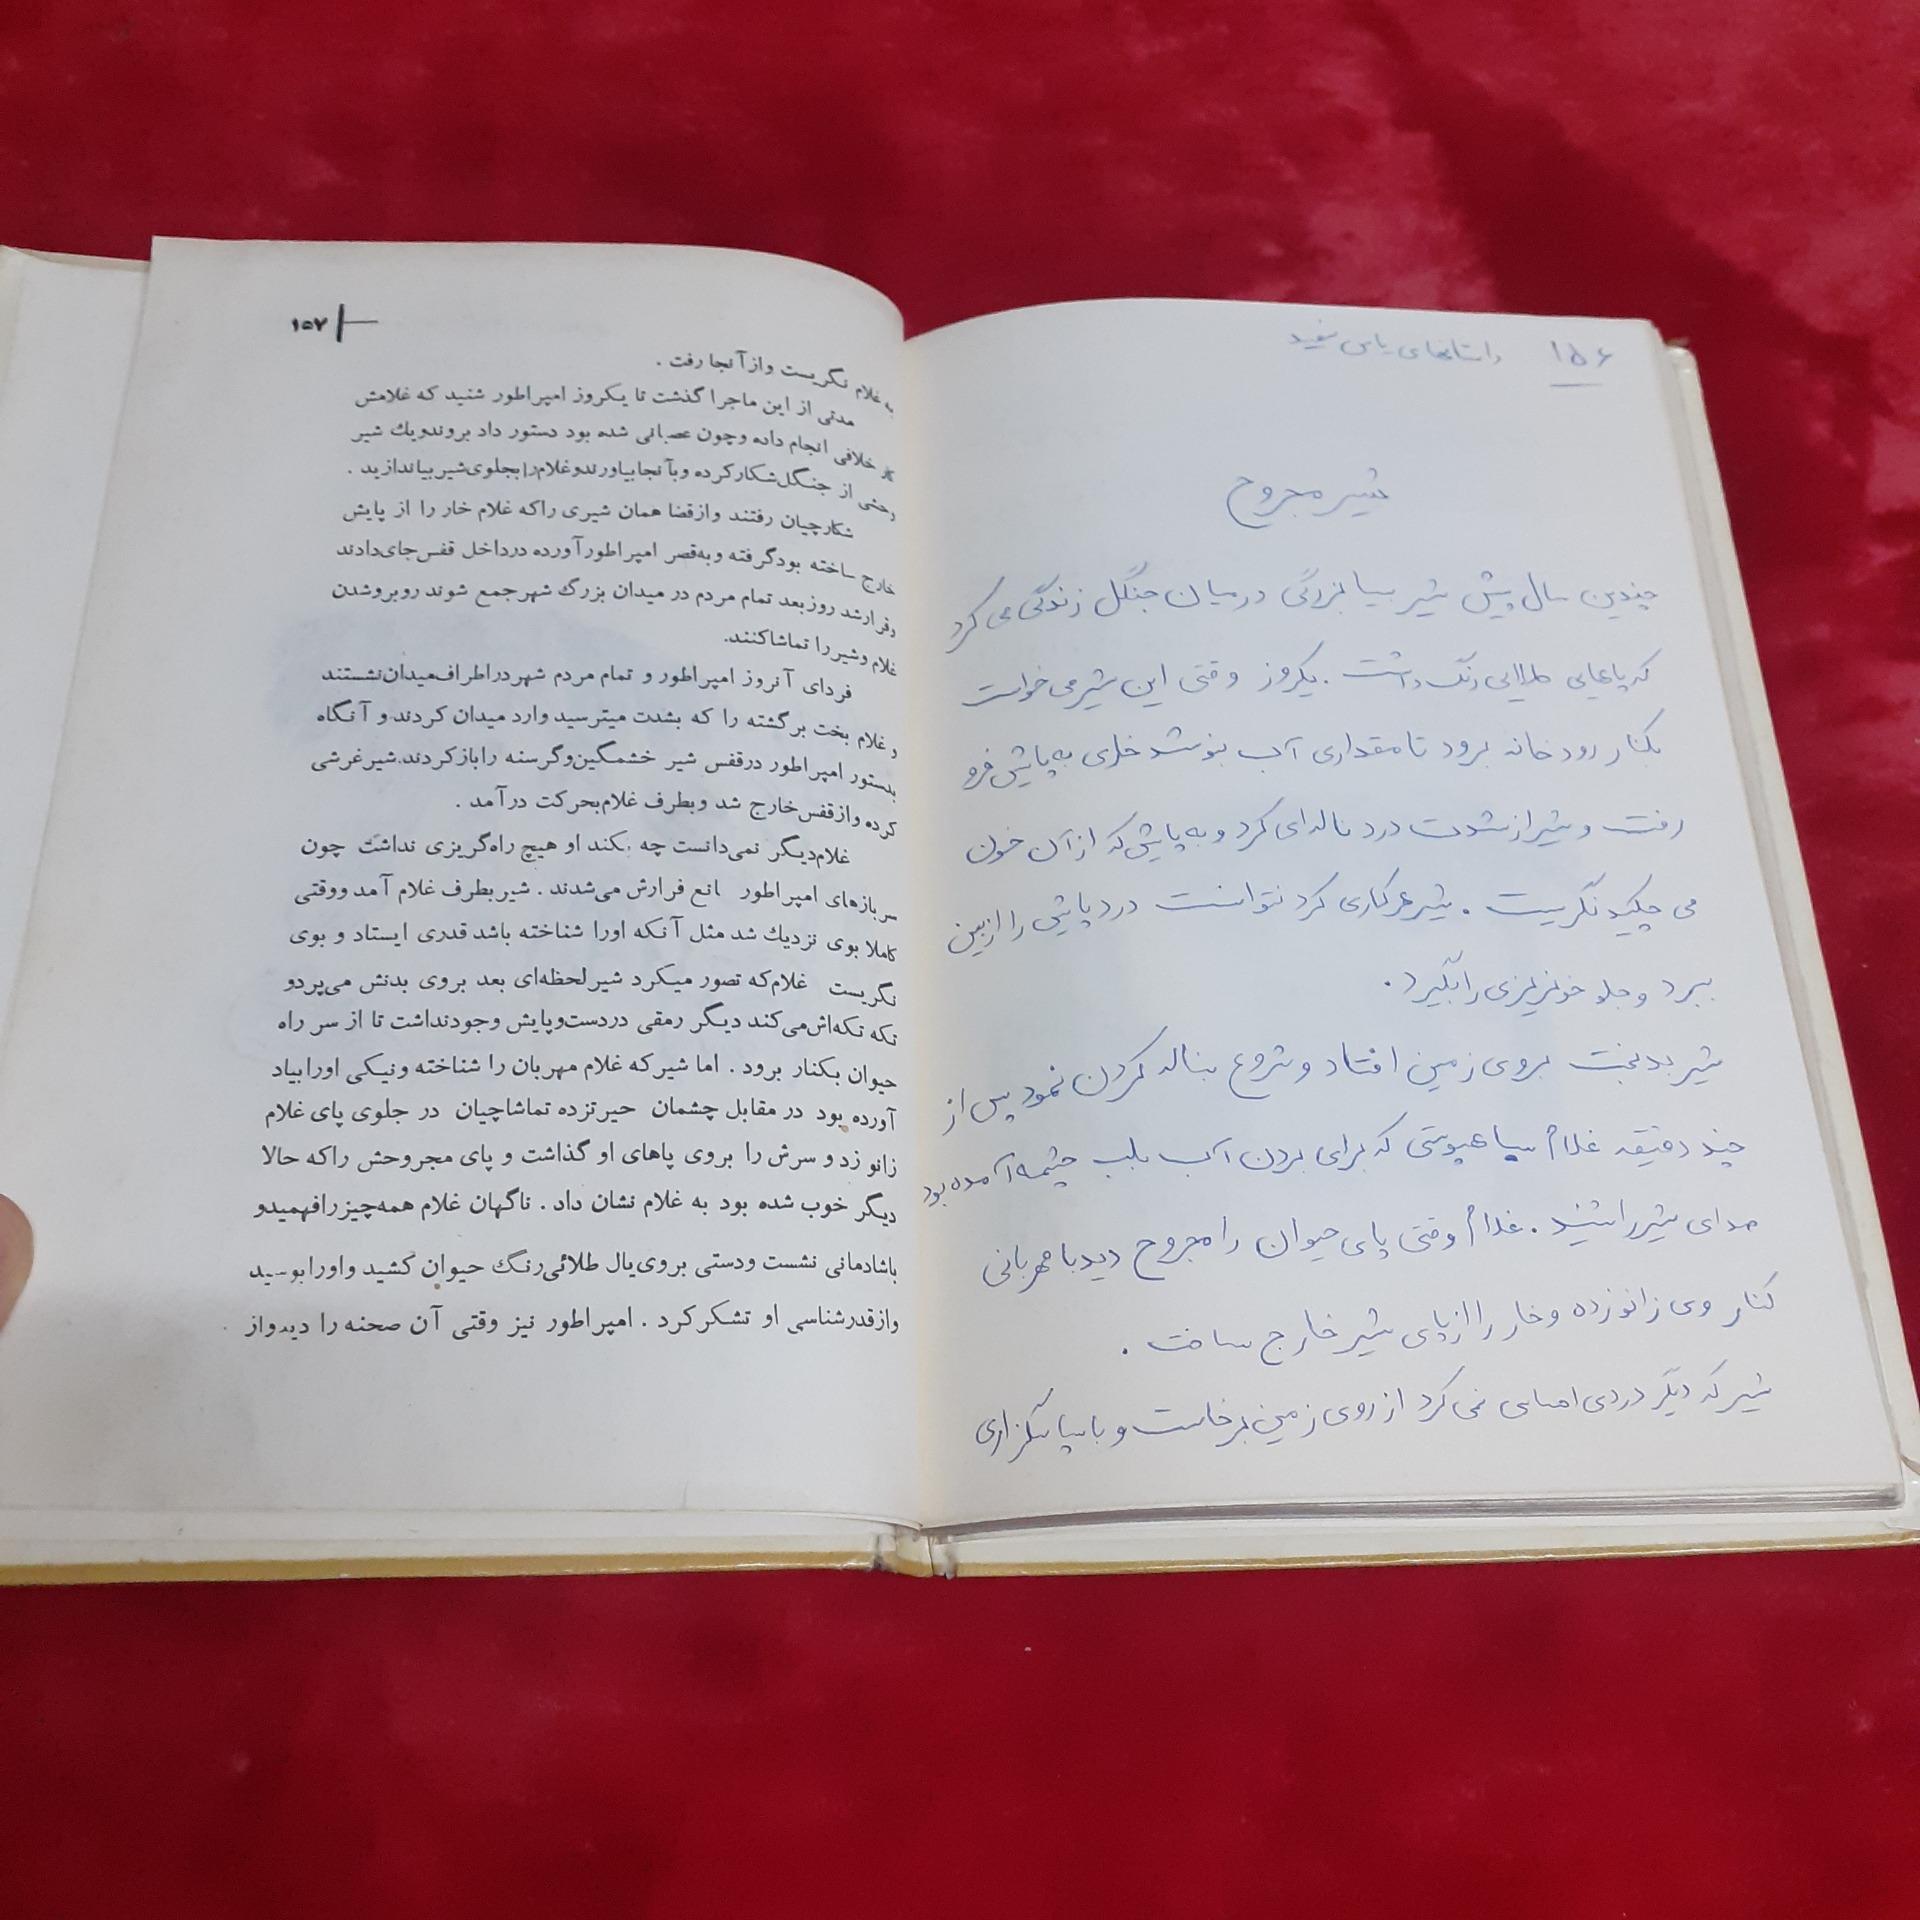 ۱۵۶ داستانهای یاس سفید
شیر مجروح
چندین سال پیش شیر بسیا بزرگی درمیان جنگل زندگی می کرد
که یالهایی طلایی رنگ داشت. یکروز وقتی این شیر می خواست
بکنار رودخانه برود تا مقداری آب بنوشد خاری به پایش فرو
رفت و شیر از شدت درد ناله‌ای کرد و به پایش که از آن خون
می چکید نگریست . شیر هر کاری کرد نتوانست درد پایش را ازبین
ببرد و جلو خونریزی را بگیرد .
شیر بدبخت بروی زمین افتاد و شروع بناله کردن نمود پس از
چند دقیقه غلام سیاهپوستی که برای بردن آب بلب چشمه آمده بود
صدای شیر را شنید . غلام وقتی پای حیوان را مجروح دید با مهربانی
کنار وی زانو زده و خار را از پای شیر خارج ساخت .
شیر که دیگر دردی احساس نمی کرد از روی زمین برخاست و با سپاسگزاری
۱۵۷
به غلام نگریست واز آنجا رفت .
مدتی از این ماجرا گذشت تا یکروز امپراطور شنید که غلامش
کار خلافی انجام داده وچون عصبانی شده بود دستور داد بروندویك شیر
وحشی از جنگل شکار کرده وبآنجا بیاورند و غلام را بجلوی شیر بیاندازید .
شکارچیان رفتند وازقضا همان شیری راکه غلام خار را از پایش
خارج ساخته بود گرفته و به قصر امپراطور آورده درداخل قفس جای دادند
وقرارشد روز بعد تمام مردم در میدان بزرگ شهر جمع شوند روبروشدن
غلام وشیر را تماشا کنند.
فردای آنروز امپراطور و تمام مردم شهر دراطراف میدان نشستند
و غلام بخت برگشته را که بشدت میترسید وارد میدان کردند و آنگاه
بدستور امپراطور درقفس شیر خشمگین وگرسنه را باز کردند.شیر غرشی
کرده واز قفس خارج شد وبطرف غلام بحرکت در آمد .
غلام دیگر نمی دانست چه بکند او هیچ راه گریزی نداشت چون
سربازهای امپراطور مانع فرارش می شدند . شیر بطرف غلام آمد ووقتی
کاملا بوی نزدیك شد مثل آنکه اورا شناخته باشد قدری ایستاد و بوی
نگریست غلام که تصور میکرد شیر لحظه‌ای بعد بروی بدنش می پردو
تکه تکه‌اش می کند دیگر رمقی دردست وپایش وجود نداشت تا از سر راه
حیوان بکنار برود . اما شیر که غلام مهربان را شناخته ونیکی اورا بیاد
آورده بود در مقابل چشمان حیرتزده تماشاچیان در جلوی پای غلام
زانو زد و سرش را بروی پاهای او گذاشت و پای مجروحش راکه حالا
دیگر خوب شده بود به غلام نشان داد . ناگهان غلام همه چیز را فهمیدو
باشادمانی نشست ودستی بروی یال طلائی رنگ حیوان کشید واورا بوسید
وازقدرشناسی او تشکر کرد . امپراطور نیز وقتی آن صحنه را دیدواز